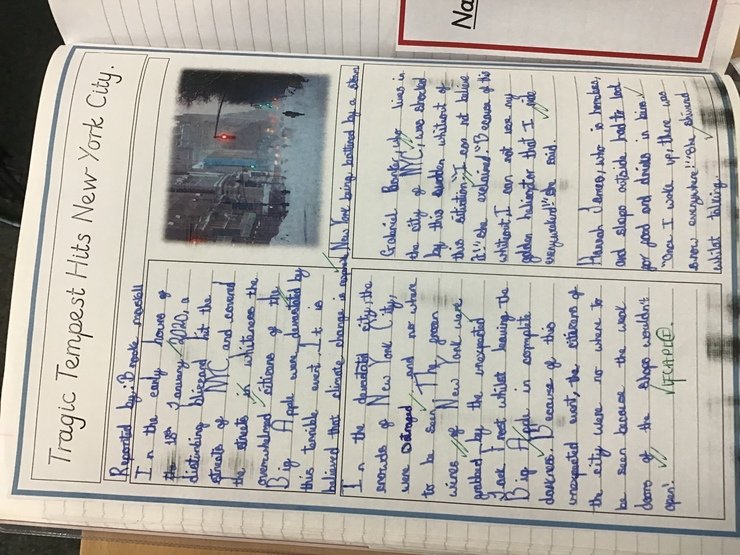 Tragic Tempest Hits New York City.
Reported by: Brooke
In the early hours of
1st January 2020, a
distending blizzard hit the
streets of NYC and covered
the streets in whiteness the
overwhelmed citizens of the
Big Apple were devastated by
this terrible event. It is
believed that climate change is
New York being battered by a storm
In the devastated city, the
crowds of New York City,
were and no where
to be seen. The frozen
wires of New York were
grabbed by the unexpected
Jack Frost whilst leaving the
Big Apple in complete
darkness. Because of this
unexpected event, the citizens of
the city were no where to
be seen because the weak
doors of the shops wouldn't
open!
Gabriel who lives in
the city of NYC, was shocked
by this sudden whiteout of
this situation, "I can not believe
it!" she exclaimed "Because of this
whiteout, I can not use my
golden helicopter that I use
everyweekend!" she said.
Hannah Jones, who is homeless,
and sleeps outside had to look
for food and drinks in bins.
"Once I woke up, there was
snow everywhere!" She shivered
whilst talking.
Na